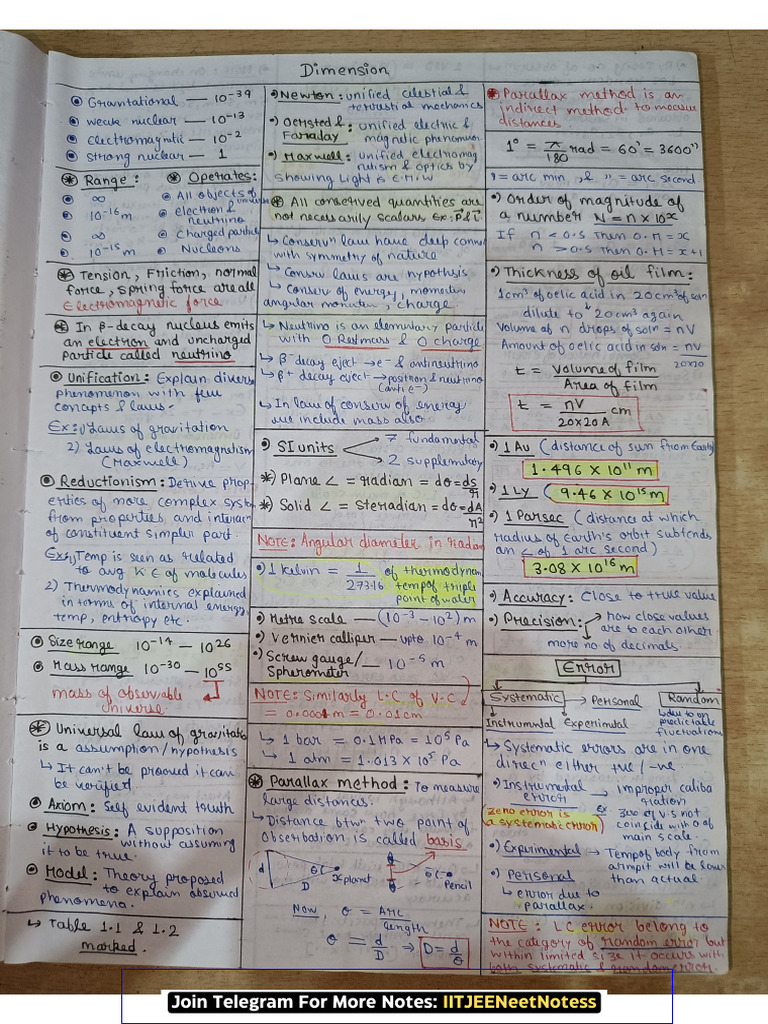 Dimension
⦿ Gravitational — 10⁻³⁹
⦿ weak nuclear — 10⁻¹³
⦿ electromagnetic — 10⁻²
⦿ strong nuclear — 1
⦿ Range: ⦿ Operates:
⦿ ∞ ⦿ All objects of universe
⦿ 10⁻¹⁶ m ⦿ electron & neutrino
⦿ ∞ ⦿ Charged particle
⦿ 10⁻¹⁵ m ⦿ Nucleons
⦿ Tension, Friction, normal
force, spring force are all
Electromagnetic force
⦿ In β-decay nucleus emits
an electron and uncharged
particle called neutrino
⦿ Unification: Explain divers
phenomenon with few
concepts & laws.
Ex: 1) Laws of gravitation
2) Laws of electromagnetism
(Maxwell)
⦿ Reductionism: Derive prop-
erties of more complex syste
from properties and interac
of constituent simpler part.
Ex: 1) Temp is seen as related
to avg K.E of molecules
2) Thermodynamics explained
in terms of internal energy,
temp, entropy etc.
⦿ Size range 10⁻¹⁴ — 10²⁶
⦿ Mass range 10⁻³⁰ — 10⁵⁵
mass of observable
universe
⦿ Universal law of gravitatio
is a assumption/hypothesis
↳ It can't be prooved it can
be verified.
⦿ Axiom: Self evident truth
⦿ Hypothesis: A supposition
without assuming
it to be true.
⦿ Model: Theory proposed
to explain observed
phenomena.
↳ Table 1.1 & 1.2
marked.
•) Newton: unified celestial &
terrestrial mechanics
•) Oersted &
Faraday: unified electric &
magnetic phenomenon
•) Maxwell: unified electromag
netism & optics by
showing light is E.M.W
⦿ All conserved quantities are
not necessarily scalars Ex: P⃗ & L⃗
↳ Conservⁿ law have deep connec
with symmetry of nature
↳ Conserv laws are hypothsis
↳ Conserv of energy, momentum
angular momentum, charge.
↳ Neutrino is an elementary particle
with 0 Restmass & 0 charge
↳ β⁻ decay eject → e⁻ & antineutrino
↳ β⁺ decay eject → position & neutrino
(anti e⁻)
↳ In law of conserv of energy
we include mass also
•) SI units 7 fundamental
2 supplematory
*) Plane ∠ = radian = dθ = ds/r
*) Solid ∠ = steradian = dθ = dA/r²
NOTE: Angular diameter in radian
•) 1 kelvin = 1/273.16 of thermodynam
temp of triple
point of water
•) Metre scale — (10⁻³ – 10²) m
•) Vernier calliper — upto 10⁻⁴ m
•) Screw gauge/
Spherometer — 10⁻⁵ m
NOTE: Similarly L.C of V.C
= 0.0001 m = 0.01 cm
↳ 1 bar = 0.1 MPa = 10⁵ Pa
↳ 1 atm = 1.013 × 10⁵ Pa
⦿ Parallax method: To measure
large distances.
↳ Distance btwn two point of
Obserbation is called basis
d θ( D planet
θ( Pencil
Now, θ = Arc/length
θ = d/D ⇒ D = d/θ
⦿ Parallax method is an
indirect method to measure
distances.
1° = π/180 rad = 60' = 3600''
' = arc min, & '' = arc second.
•) Order of magnitude of
a number N = n × 10ˣ
If n < 0.5 then O.M = x
n > 0.5 then O.M = x+1
•) Thickness of oil film:
1cm³ of oelic acid in 20cm³ of soln
dilute to 20cm³ again
Volume of n drops of soln = nV
Amount of oelic acid in soln = nV/20×20
t = Volume of film/Area of film
t = nV/20×20A cm
•) 1 Au (distance of sun from Earth)
1.496 × 10¹¹ m
•) 1 Ly ( 9.46 × 10¹⁵ m
•) 1 Parsec (distance at which
radius of Earth's orbit subtends
an ∠ of 1 arc second)
3.08 × 10¹⁶ m
•) Accuracy: Close to true value
•) Precision: → how close values
are to each other
more no of decimals.
Error
Systematic → Personal Random
Instrumntal Experimetal ↳ due to un
predictable
fluctuations
↳ Systematic errors are in one
direcⁿ either +ve / -ve.
•) Instrumental → improper caliba
error ration
zero error is
a systematic error) ex zero of v.s not
coinside with 0 of
main scale.
•) Experimental → Temp of body from
armpit will be lower
than actual.
•) Personal
↳ error due to
parallax.
NOTE: LC error belong to
the category of random error but
within limited size it occurs with
both systematic & random error.
Join Telegram For More Notes: IITJEENeetNotess